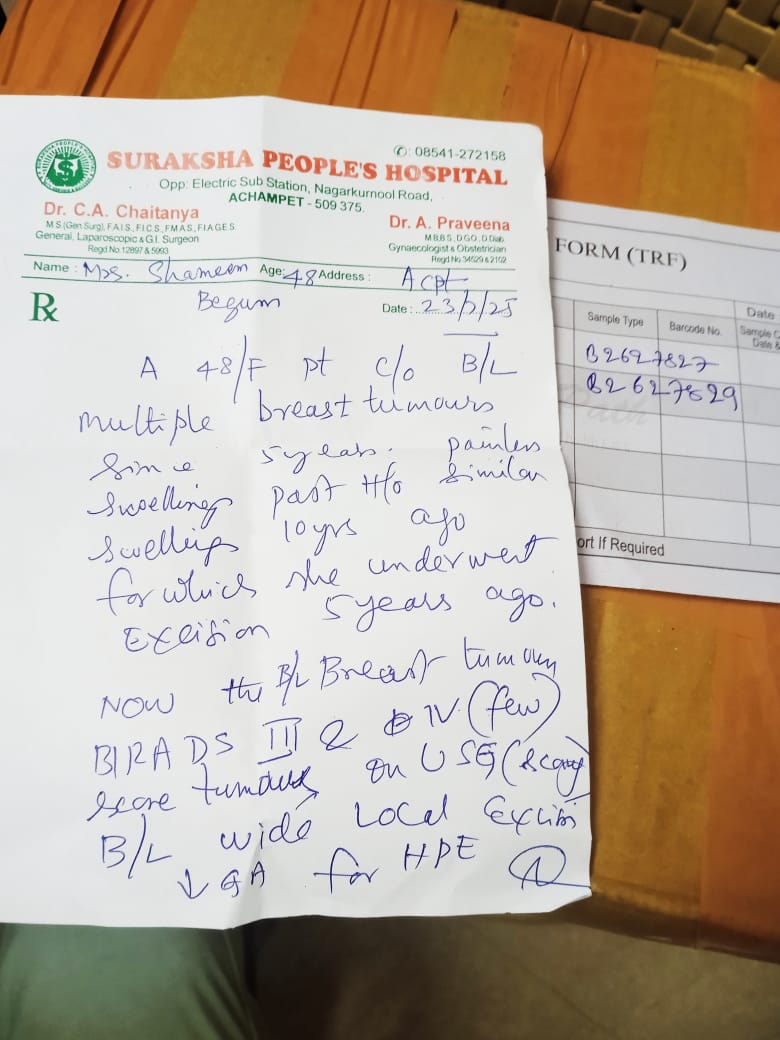 ✆: 08541-272158
SURAKSHA PEOPLE'S HOSPITAL
Opp: Electric Sub Station, Nagarkurnool Road,
ACHAMPET - 509 375.
Dr. C.A. Chaitanya
M.S (Gen Surg), F.A.I.S., F.I.C.S., F.M.A.S., F.I.A.G.E.S.
General, Laparoscopic & G.I. Surgeon
Regd No.12897 & 5993
Dr. A. Praveena
M.B.B.S., D.G.O., D.Diab.
Gynaecologist & Obstetrician
Regd No.34629 & 2102
Name : Mrs. Shameem Age: 48 Address : Acpt
Begum
Rx
Date : 23/2/25
A 48/F pt c/o B/L
multiple breast tumours
since 5 years. painless
swellings past H/o similar
swellings 10yrs ago
for which she underwent
Excision 5 years ago.
NOW the B/L Breast tumours
BIRADS III & IV (few)
score tumours on USG
B/L wide Local Excisi
↓ GA for HPE
FORM (TRF)
Date
Sample Type
Barcode No.
Sample C
Date &
B2627827
B2627829
Path
ort If Required